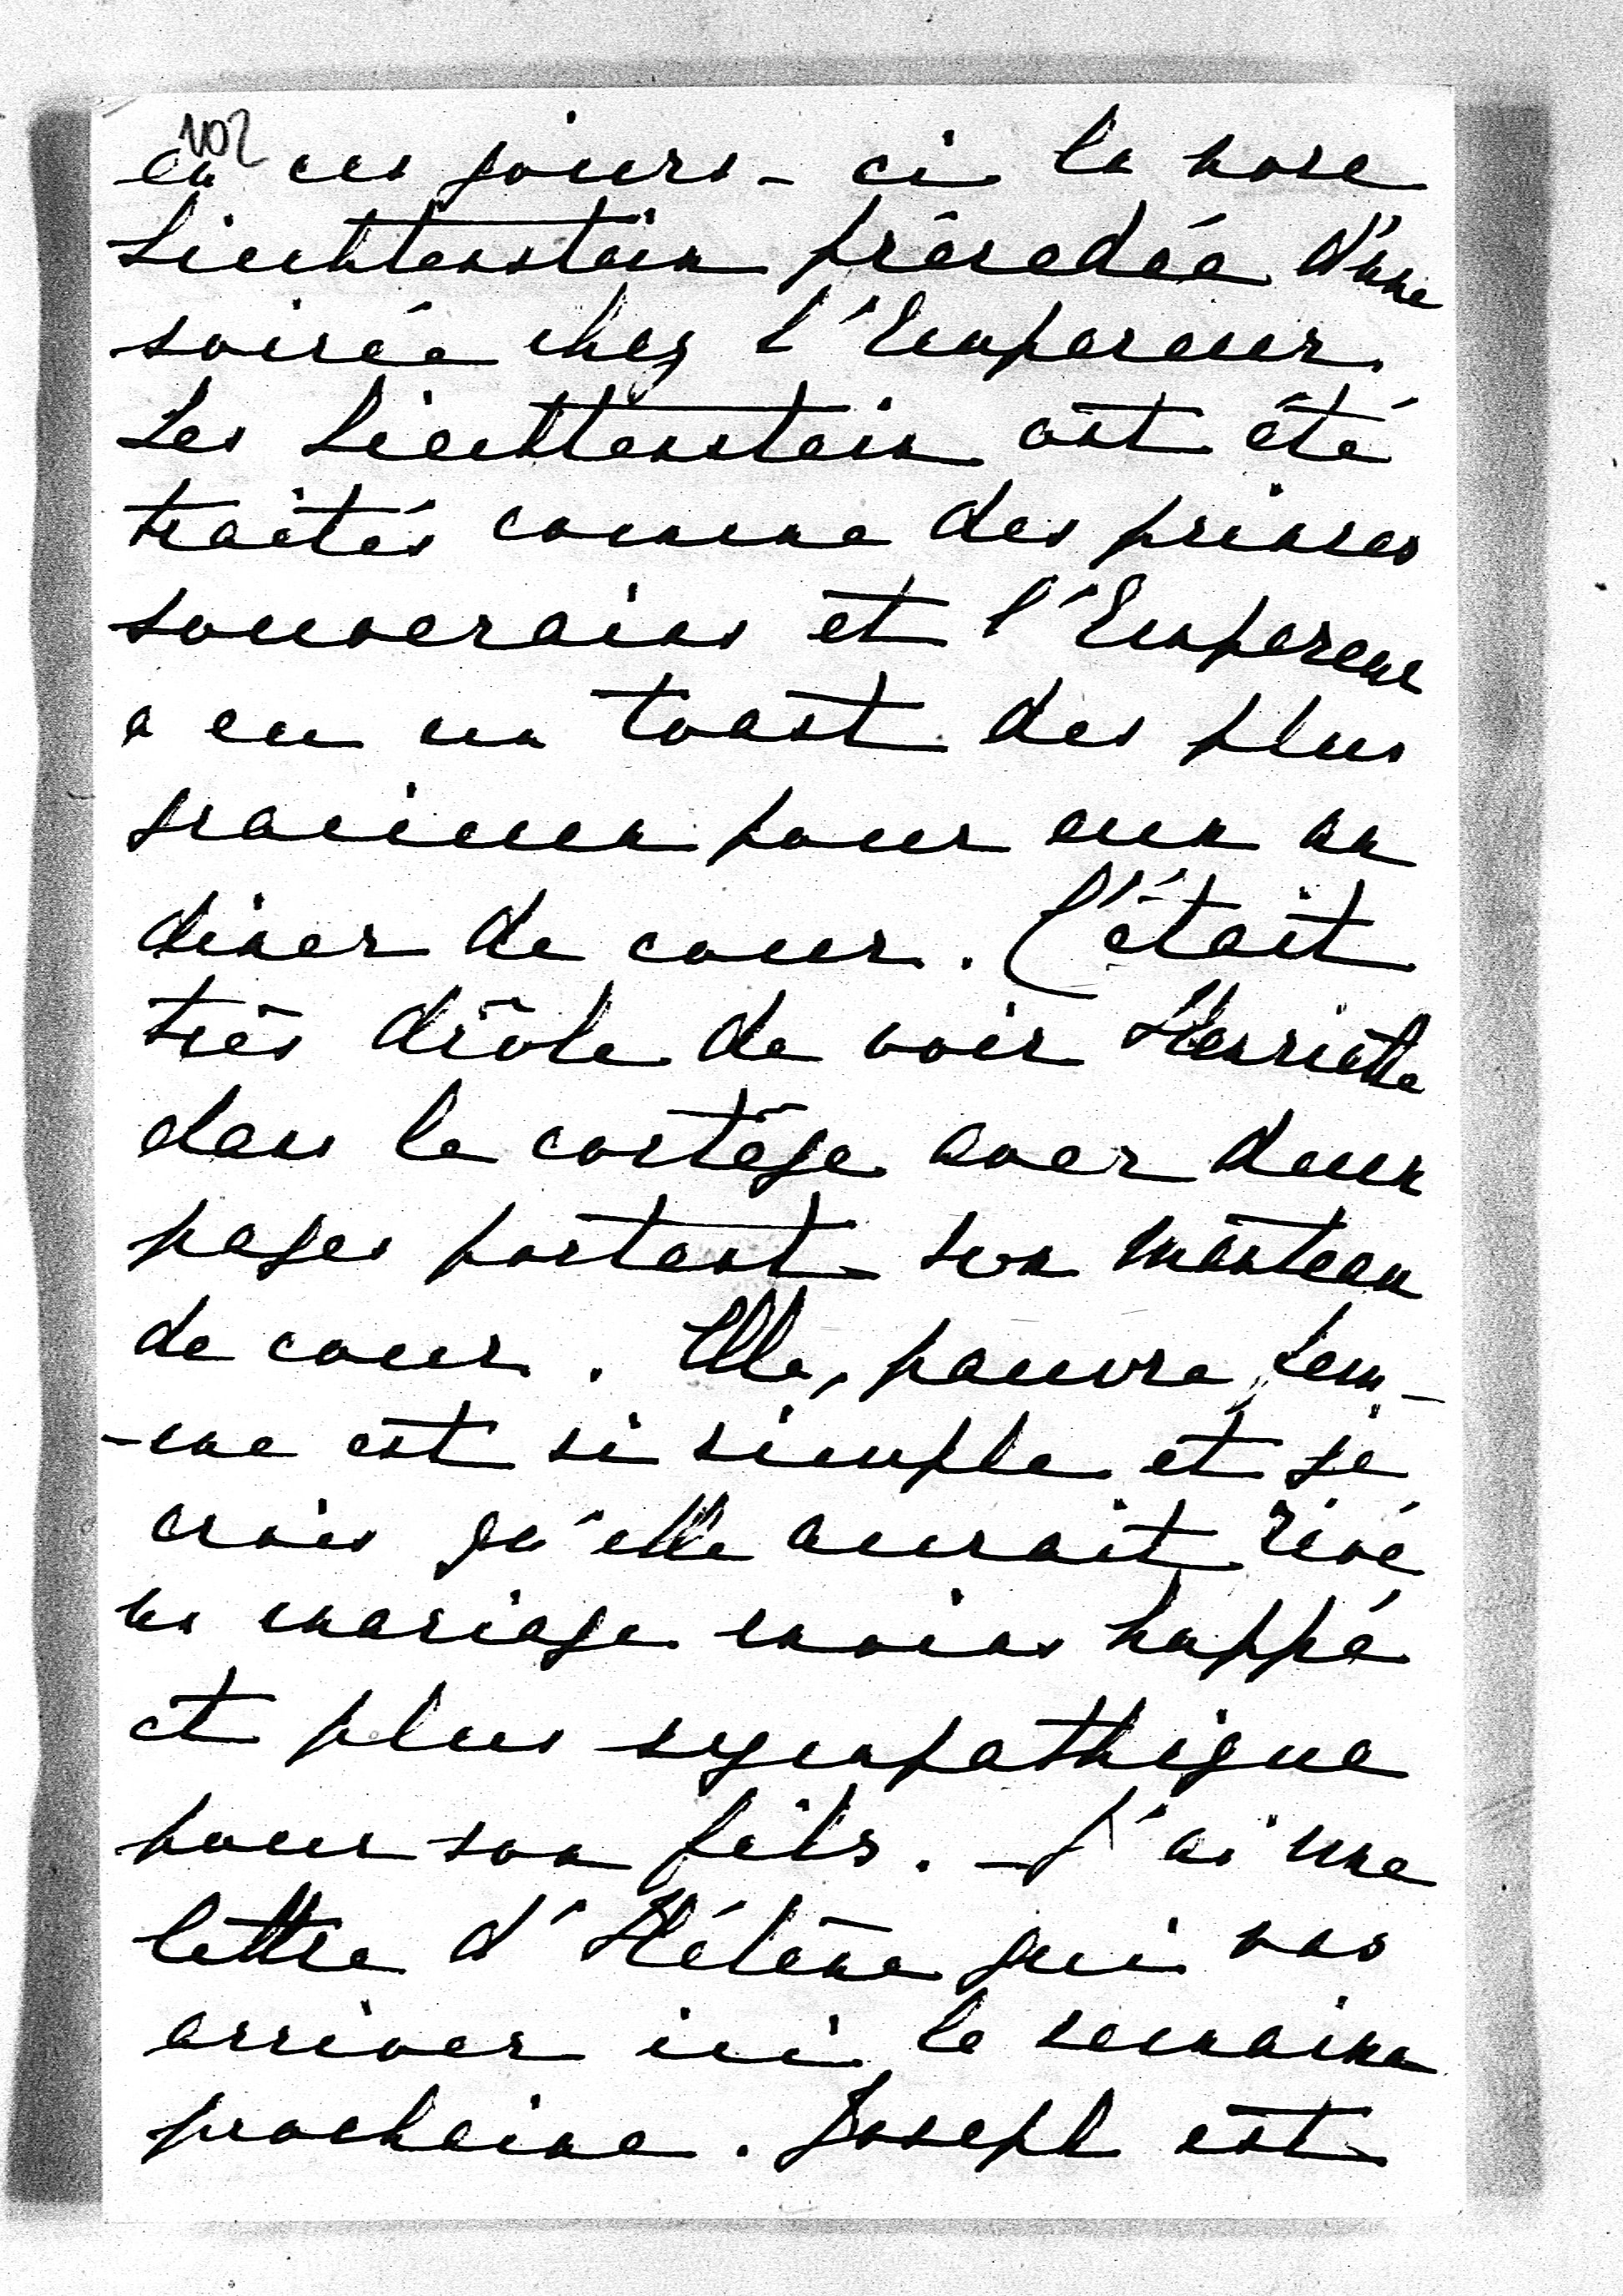 102
eu ces jours-ci la noce
Liechtenstein précédée d'une
soirée chez l'Empereur.
Les Liechtenstein ont été
traités comme des princes
souverains et l'Empereur
a eu un toast des plus
gracieux pour eux au
diner de cour. C'était
très drôle de voir Henriette
dans le cortège avec deux
pages portant son manteau
de cour. Elle, pauvre fem-
-me est si simple et je
crois qu'elle aurait rêvé
un mariage moins huppé
et plus sympathique
pour son fils. - J'ai une
lettre d'Hélène qui vas
arriver ici la semaine
prochaine. Joseph est